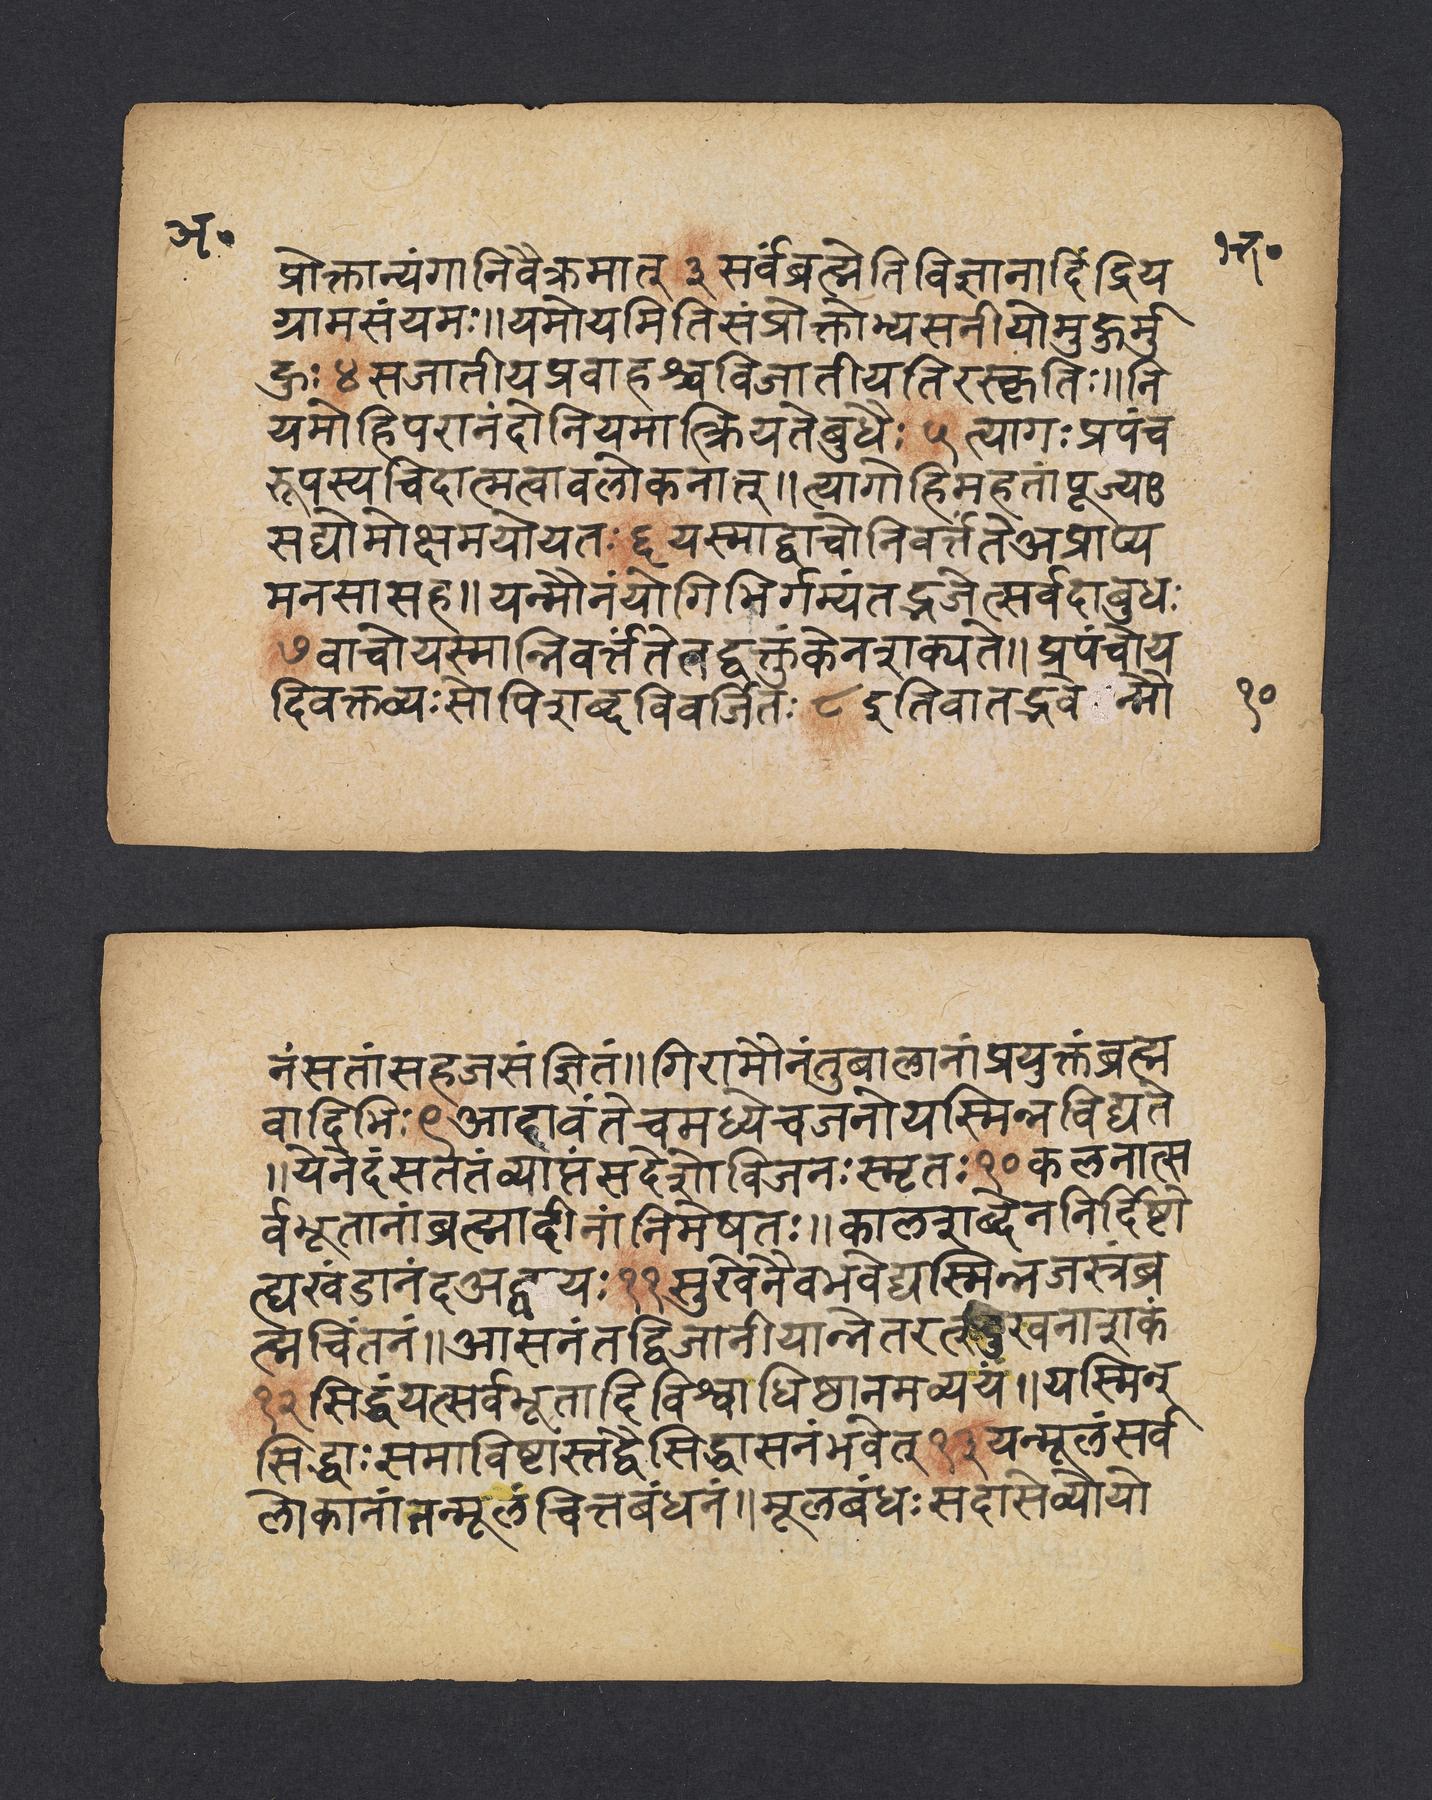 अ॰
प्रोक्तान्यंगानिवैक्रमात् ३ सर्वंब्रह्मेतिविज्ञानादिंद्रिय
ग्रामसंयमः॥यमोयमितिसंप्रोक्तोभ्यसनीयोमुहुर्मु
हुः ४ सजातीयप्रवाहश्चविजातीयतिरस्कृतिः॥नि
यमोहिपरानंदोनियमात्क्रियतेबुधैः ५ त्यागःप्रपंच
रूपस्यचिदात्मत्वावलोकनात्॥त्यागोहिमहतांपूज्यः
सद्योमोक्षमयोयतः ६ यस्माद्वाचोनिवर्त्तंतेअप्राप्य
मनसासह॥यन्मौनंयोगिभिर्गम्यंतद्भजेत्सर्वदाबुधः
७ वाचोयस्मान्निवर्त्तंतेतद्वक्तुंकेनशक्यते॥प्रपंचोय
दिवक्तव्यःसोपिशब्दविवर्जितः ८ इतिवातद्भवे न्मौ
१०
नंसतांसहजसंज्ञितं॥गिरामौनंतुबालानांप्रयुक्तंब्रह्म
वादिभिः ९ आदावंतेचमध्येचजनोयस्मिन्नविद्यते
॥येनेदंसततंव्याप्तंसदेशोविजनःस्मृतः १० कलनात्स
र्वभूतानांब्रह्मादीनांनिमेषतः॥कालशब्देननिर्दिष्टो
ह्यखंडानंदअद्वयः ११ सुखेनैवभवेद्यस्मिन्नजस्त्रंब्र
ह्मचिंतनं॥आसनंतद्विजानीयान्नेतरत्सुखनाशकं
१२ सिद्धंयत्सर्वभूतादिविश्वाधिष्ठानमव्ययं॥यस्मिन्
सिद्धाःसमाविष्टास्तद्वैसिद्धासनंभवेत् १३ यन्मूलंसर्व
लोकानांतन्मूलंचित्तबंधनं॥मूलबंधःसदासेव्योयो